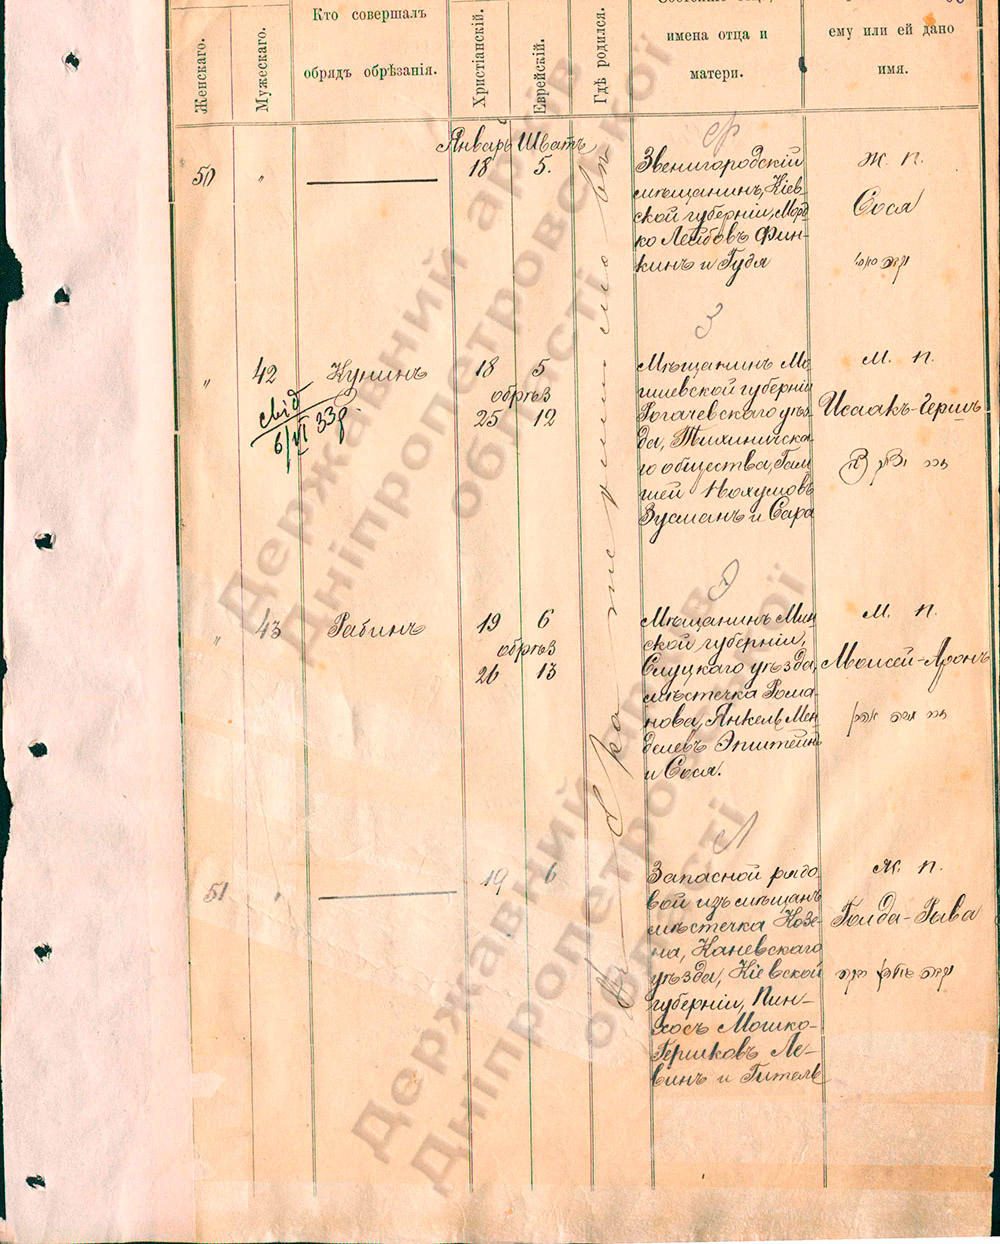 Женскаго.
Мужескаго.
Кто совершалъ
обрядъ обрѣзанія.
Христіанскій.
Еврейскій.
Гдѣ родился.
имена отца и
матери.
ему или ей дано
имя.
Январь Шватъ
50 " 18 5.
Звенигородскій
мѣщанинъ, Кіев-
ской губерніи, Морд
ко Лейбовъ Фин-
кинъ и Гудя
Ж. п.
Сося
" 42 Кунинъ 18 5
обрѣз
25 12
свід
6/VI 33р.
Мѣщанинъ Мо
гилевской губерніи
Рогачевскаго уѣз-
да, Тихиничска-
го общества, Гам
шей Нохумовъ
Зусманъ и Сара
М. п.
Исаакъ-Гершъ
" 43 Рабинъ 19 6
обрѣз
26 13
Мѣщанинъ Мин
ской губерніи,
Слуцкаго уѣзда,
мѣстечка Рома-
нова, Янкель Мен
делевъ Эпштейнъ
и Сося.
М. п.
Моисей-Аронъ
51 " 19 6
Запасной рядо-
вой изъ мѣщанъ
мѣстечка Козе-
на, Каневскаго
уѣзда, Кіевской
губерніи, Пин-
хосъ Мошко-
Гершковъ Ле-
винъ и Гитель
Ж. п.
Голда-Рыва
Державний архів
Дніпропетровської
області
Державний архів
Дніпропетровської
області